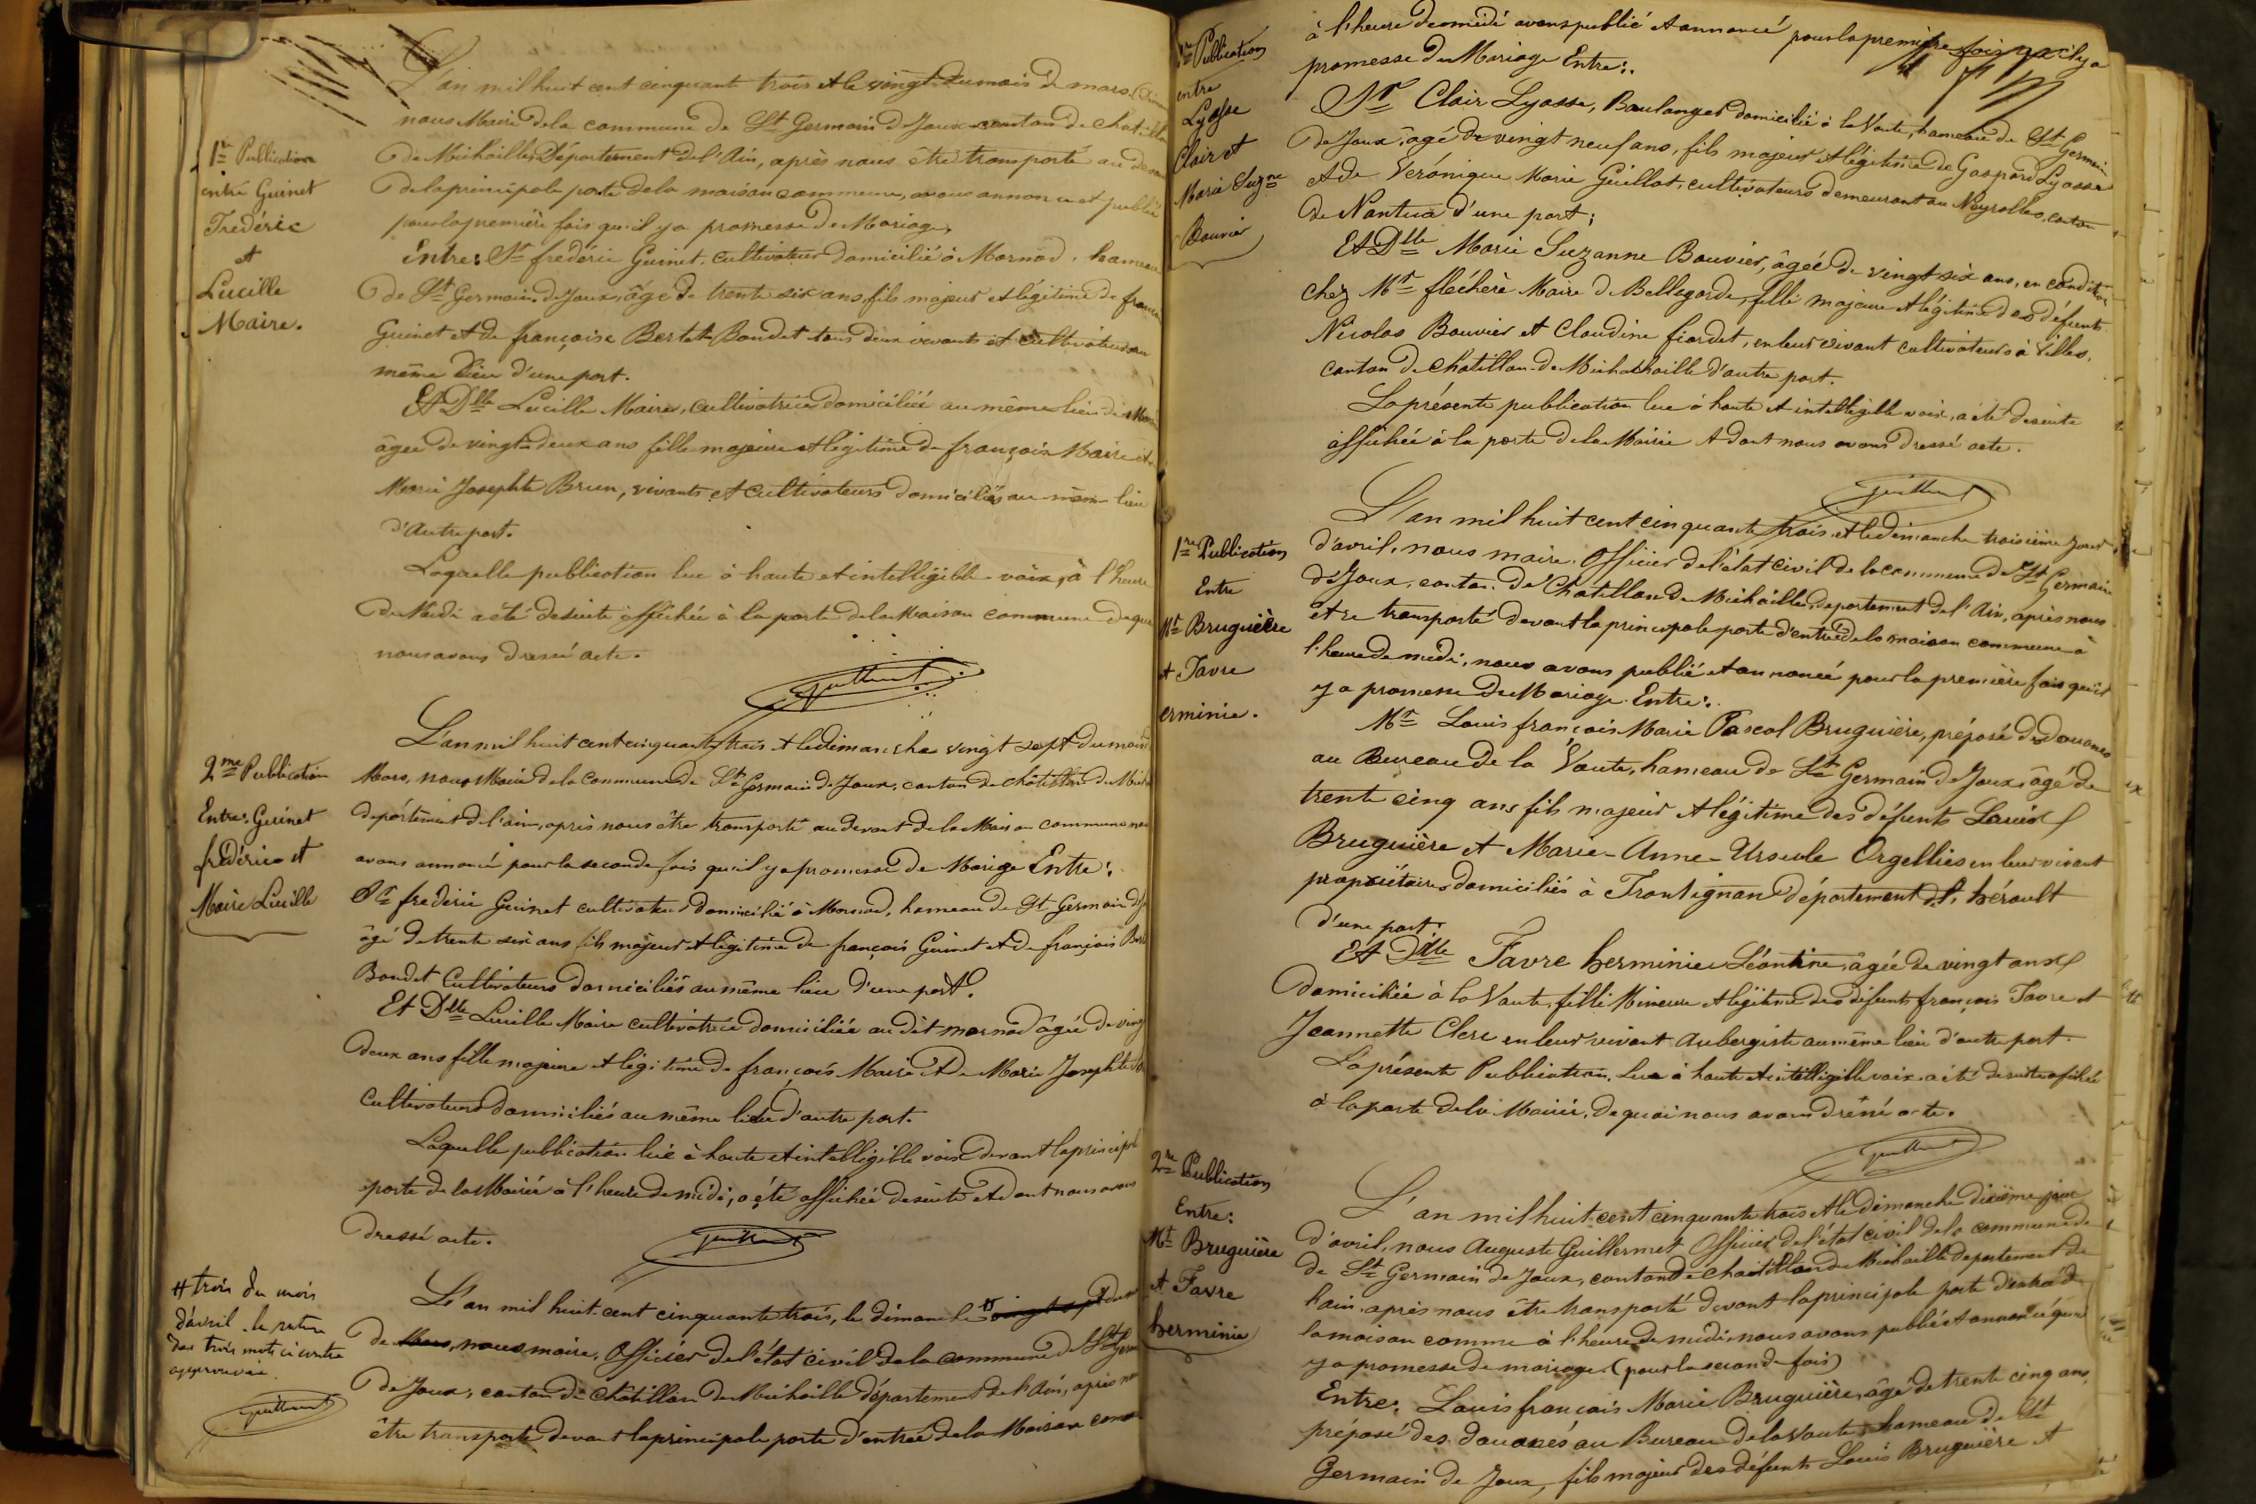 1re Publication
entre Guinet
Frédéric
et
Lucille
Maire.
L'an mil huit cent cinquante trois et le vingt du mois de mars
nous Maire de la commune de St Germain de Joux canton de Chatillon
de Michaille, Département de l'Ain, après nous être transporté au devant
de la principale porte de la maison commune, avons annoncé et publié
pour la première fois qu'il y a promesse de Mariage,
Entre: Sr frédéric Guinet, cultivateur domicilié à Marnod, hameau
de St Germain de Joux, âgé de trente six ans, fils majeur et légitime de françois
Guinet et de françoise Bertet Boudet tous deux vivants et cultivateurs au
même lieu d'une part.
Et Dlle Lucille Maire, cultivatrice domiciliée au même lieu de
âgée de vingt deux ans fille majeure et légitime de françois Maire et
Marie Josephte Brun, vivants et cultivateurs domiciliés au même lieu
d'autre part.
Laquelle publication lue à haute et intelligible voix, à l'heure
de Midi a été desuite affichée à la porte de la Maison commune de quoi
nous avons dressé acte.
2me Publication
Entre: Guinet
frédéric et
Maire Lucille
L'an mil huit cent cinquante trois et le dimanche vingt sept du mois
Mars, nous Maire de la commune de St Germain de Joux, canton de châtillon de Mich
département de l'ain, après nous être transporté au devant de la Maison commune nous
avons annoncé pour la seconde fois qu'il y a promesse de Mariage Entre:
Sr frédéric Guinet cultivateur domicilié à Marnod, hameau de St Germain de
âgé de trente six ans fils majeur et légitime de françois Guinet et de françoise
Boudet Cultivateurs domiciliés au même lieu d'une part.
Et Dlle Lucille Maire cultivatrice domiciliée au dit marnod âgée de vingt
deux ans fille majeure et légitime de françois Maire et de Marie Josephte
Cultivateurs domiciliés au même lieu d'autre part.
Laquelle publication lue à haute et intelligible voix devant la principale
porte de la Mairie à l'heure de midi, a été affichée desuite et dont nous avons
dressé acte.
# trois du mois
d'avril. la rature
des trois mots ci contre
approuvée.
L'an mil huit cent cinquante trois, le dimanche # vingt sept du mois
de Mars, nous maire, Officier de l'état civil de la commune de St Germ
de Joux, canton de Châtillon de Michaille département de l'Ain, après nous
être transporté devant la principale porte d'entrée de la Maison comm
1re Publication
entre
Lyasse
Clair et
Marie Suzne
Bouvier
à l'heure de midi avons publié et annoncé pour la première fois qu'il y a
promesse de Mariage Entre:
Sr Clair Lyasse, Boulanger domicilié à la Voute, hameau de St Germain
de Joux, âgé de vingt neuf ans, fils majeur et légitime de Gaspard Lyasse
et de Véronique Marie Guillot, cultivateurs demeurant au Neyrolles, canton
de Nantua d'une part;
Et Dlle Marie Suzanne Bouvier, âgée de vingt six ans, en condition
chez Mr fléchère Maire de Bellegarde, fille majeure et légitime des défunts
Nicolas Bouvier et Claudine fiardet, en leur vivant cultivateurs à Villes,
canton de Châtillon-de-Michaille d'autre part.
La présente publication lue à haute et intelligible voix, a été desuite
affichée à la porte de la Mairie et dont nous avons dressé acte.
1re Publication
Entre
Mr Bruguière
et Favre
erminie.
L'an mil huit cent cinquante trois et le dimanche troisième jour
d'avril, nous maire, Officier de l'état civil de la commune de St Germain
de Joux, canton de Chatillon de Michaille, département de l'Ain, après nous
être transporté devant la principale porte d'entrée de la maison commune à
l'heure de midi, nous avons publié et annoncé pour la première fois qu'il
y a promesse de Mariage Entre:
Mr Louis françois Marie Pascal Bruguière, préposé des douanes
au Bureau de la Voute, hameau de St Germain de Joux, âgé de
trente cinq ans fils majeur et légitime des défunts Louis
Bruguière et Marie-Anne-Ursule Orgellies en leur vivant
propriétaires domiciliés à Frontignan département de l'hérault
d'une part.
Et Dlle Favre herminie Léontine, âgée de vingt ans
domiciliée à la Voute, fille Mineure et légitime des défunts françois Favre et
Jeannette Clerc en leur vivant Aubergiste au même lieu d'autre part.
La présente Publication, lue à haute et intelligible voix, a été desuite affichée
à la porte de la Mairie, de quoi nous avons dréssé acte.
2me Publication
Entre:
Mr Bruguière
et Favre
herminie
L'an mil huit cent cinquante trois et le dimanche dixième jour
d'avril, nous Auguste Guillermet Officier de l'état civil de la commune de
de St Germain de Joux, canton de Chatillon de Michaille département de
l'ain, après nous être transporté devant la principale porte d'entrée de
la maison comme à l'heure de midi, nous avons publié et annoncé qu'il
y a promesse de mariage (pour la seconde fois)
Entre: Louis françois Marie Bruguière, âgé de trente cinq ans,
préposé des douanes au Bureau de la Voute hameau de St
Germain de Joux, fils majeur des défunts Louis Bruguière et